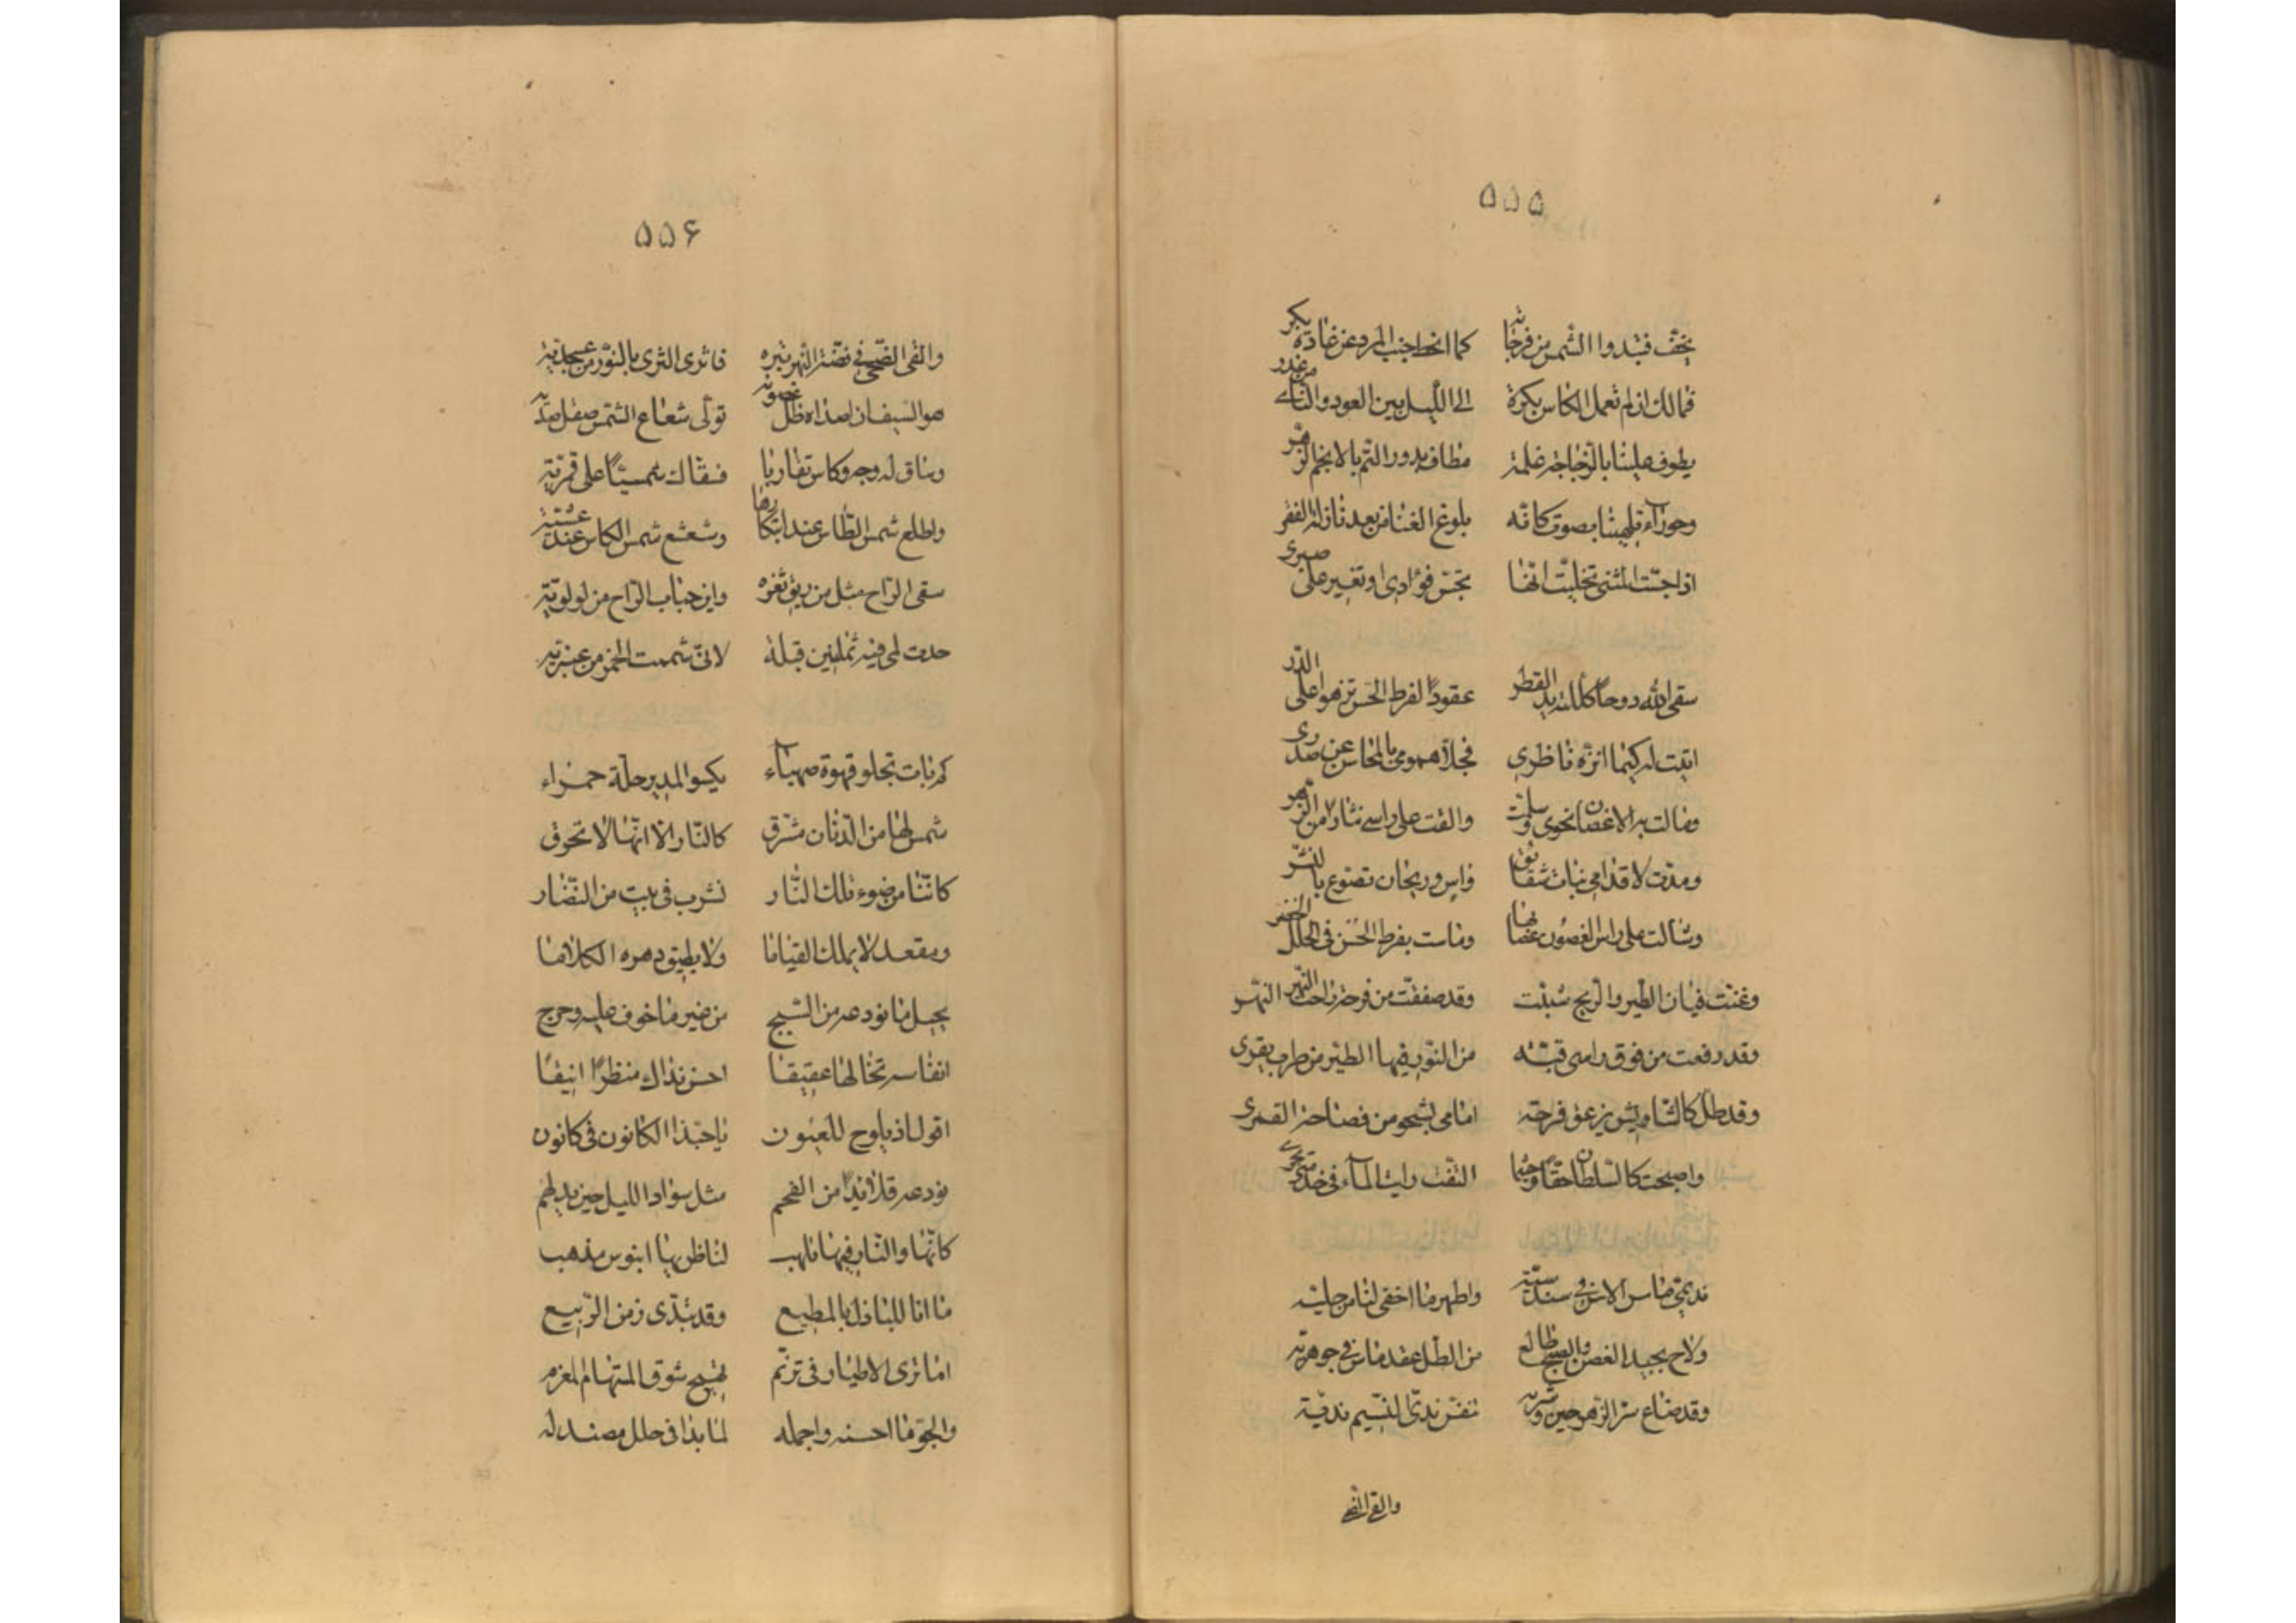 ۵۵۵
يخف فتبدوا الشمس من فرجاته كما انحط جنب المرد عن غادة بكر
فمالك ان لم تعمل الكاس بكرة الى الليل بين العود والناى من عذر
يطوف علينا بالزجاجة غلمة مطاف بدور التم بالانجم الزهر
وحوراء تلهينا بصوت كانه بلوغ الغنا من بعد نازلة الفقر
اذا جست المثنى تخليت انها تجس فوادى او تغير على صبرى
سقى الله دوحا كللته يد القطر عقودا لفرط الحسن تزهوا على الدر
اتيت له كيما انزه ناظرى فجلا همومى بالمحاسن عن صدرى
ومالت به الاغصان نحوى وسلمت والقت على راسى نثارا من الزهر
ومدت لاقدامى نبات شقائق واس وريحان تضوع بالنشر
وشالت على راس الغصون عصابها وماست بفرط الحسن فى الحلل الخضر
وغنت قيان الطير والريح شببت وقد صفقت من فرحة راحة النهر
وقد رفعت من فوق راسى قبة من النور فيها الطير من طرب يقرى
وقد ظل كالشاويش يزعق فرحة امامى بشجو من فصاحة القمرى
واصبحت كالسلطان حقا وحيثما التفت رايت الماء فى خدمتى يجرى
نديمى مآس الاس فى سندسيته واظهر ما اخفى لنا من حليته
ولاح بجيد الغصن والصبح طالع من الطل عقد ماس فى جوهريته
وقد ضاع سر الزهر حين وشى به تنفس ندى النسيم نديته
والقى الضحى
۵۵۶
والقى الضحى فى فضة النهر تبره فاثرى الثرى بالنور من عسجديته
هو السيف ان اصداه ظل غصونه تولى شعاع الشمس صقل صديه
وساق له وجه وكاس تقاربا فسقاك شمسيا على قمريته
واطلع شمس الطاس عند ابتكارها وشعشع شمس الكاس عند عشيته
سقى الراح مثل من ريق ثغره واين حباب الراح من لولويته
حدت لمى فيه ثملين قبلة لانى شممت الخمر من عنبريته
كم بات تجلو قهوة صهباء يكسو المدير حلة حمراء
شمس لها من الدنان مشرق كالنار الا انها لا تحرق
كاننا من ضوء تلك النار نشرب فى بيت من النضار
ومقعد لا يملك القياما ولا يطيق دهره الكلاما
يحيل ما نودعه من السبج من غير ما خوف عليه وحرج
انفاسه تخالها عقيقا احسن بذاك منظرا انيقا
اقول اذ يلوح للعيون يا حبذا الكانون فى كانون
نودعه قلائدا من الفحم مثل سواد الليل حين يدلهم
كانها والنار فيها تلهب لناظريها ابنوس مذهب
ما انا للباذل بالمطيع وقد تبدى زمن الربيع
اما ترى الاطيار فى ترنم تهيج شوق المستهام المغرم
والجو ما احسنه واجمله لما بدا فى حلل مصندله